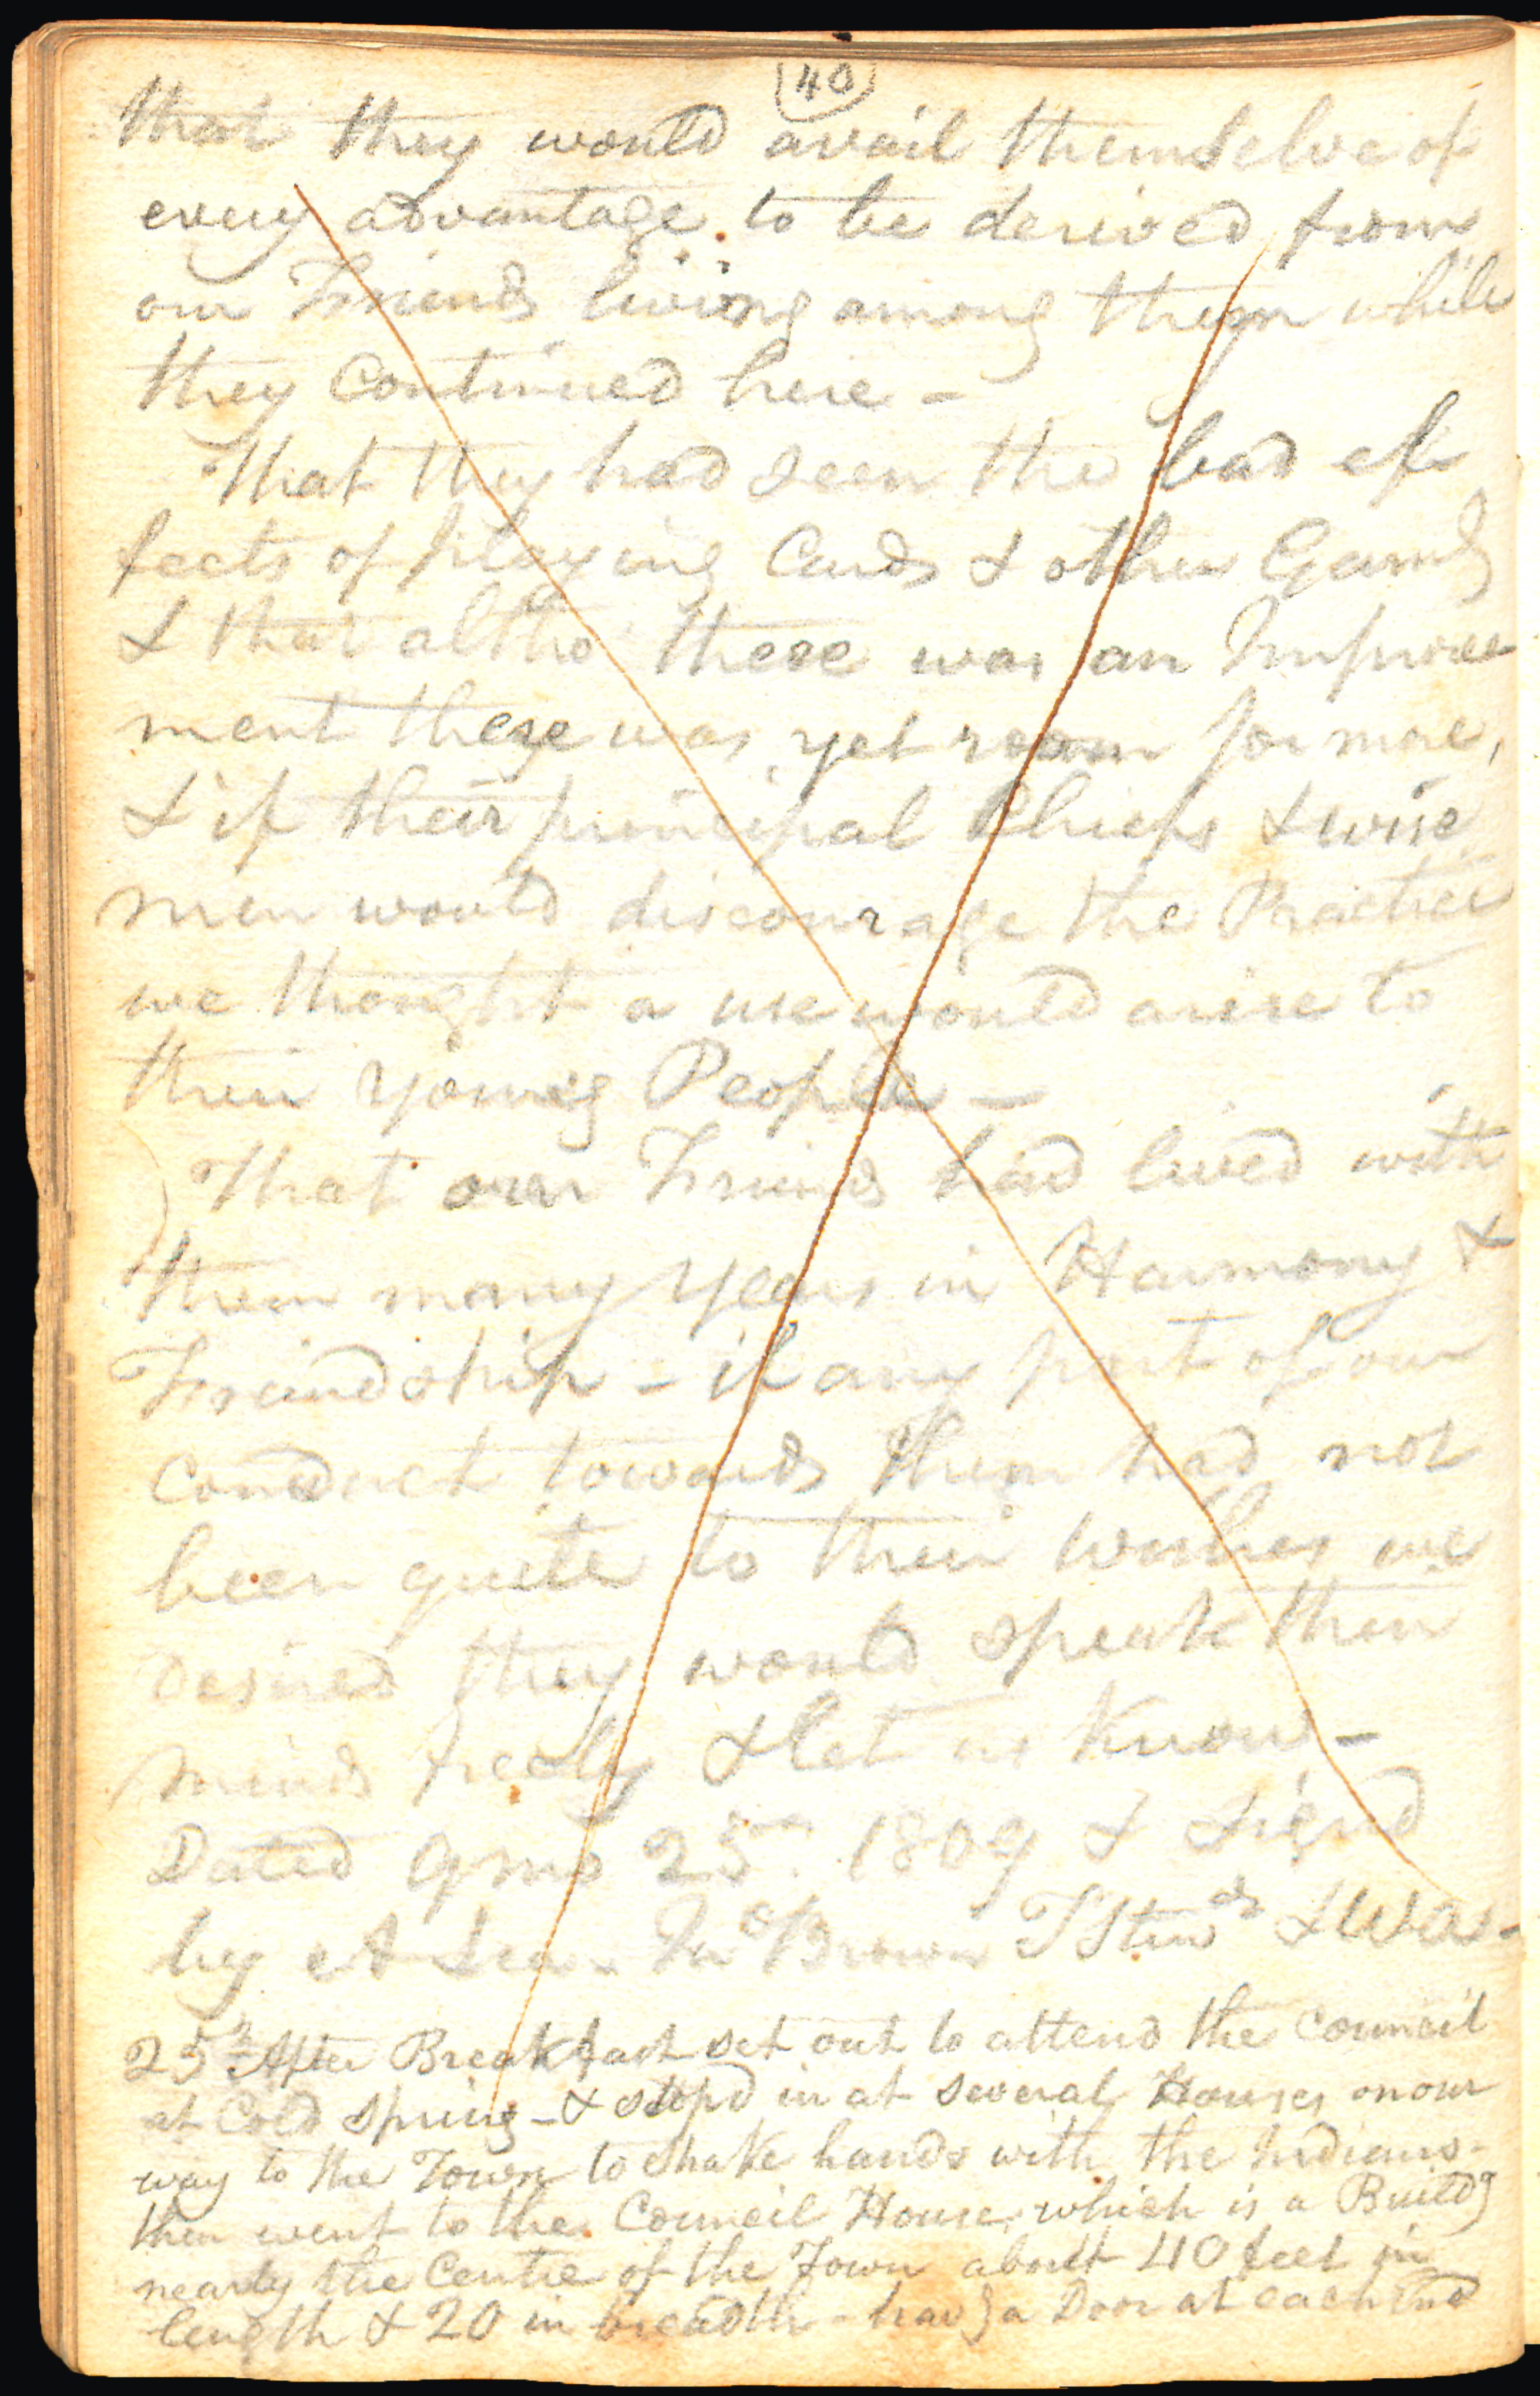 (40)
that they would avail themselve of
every advantage to be derived from
our Friends living among them while
they Continued here -
That they had seen the bad ef
fects of playing Cards & other Games
& that altho there was an Improve
ment there was yet room for more,
& if their principal Chiefs & wise
men would discourage the Practice
we thought a use would arise to
their Young People -
That our Friends had lived with
them many Years in Harmony &
Friendship - if any part of our
Conduct towards them had not
been quite to their wishes we
desired they would speak their
minds freely & let us Know -
Dated 9 mo 25th 1809 & Signd
by
25th After Breakfast set out to attend the Council
at Cold Spring - & stopd in at several Houses on our
way to the Town to shake hands with the Indians -
then went to the Council House which is a Buildg
nearly the Centre of the Town about 40 feet in
length & 20 in breadth - havg a Door at each End